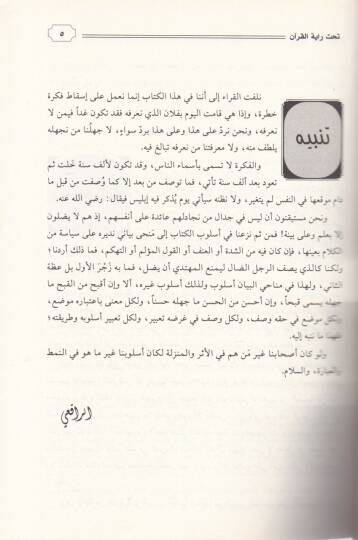 تحت راية القرآن
٥
تنبيه
نلفت القراء إلى أننا في هذا الكتاب إنما نعمل على إسقاط فكرة
خطرة، وإذا هي قامت اليوم بفلان الذي نعرفه فقد تكون غداً فيمن لا
نعرفه، ونحن نردّ على هذا وعلى هذا بردّ سواءٍ، لا جهلُنا من نجهله
يلطف منه، ولا معرفتنا من نعرفه تبالغ فيه.
والفكرة لا تسمى بأسماء الناس، وقد تكون لألف سنة خلت ثم
تعود بعد ألف سنة تأتي، فما توصف من بعد إلا كما وُصفت من قبل ما
دام موقعها في النفس لم يتغير، ولا نظنه سيأتي يوم يُذكر فيه إبليس فيقال: رضي الله عنه.
ونحن مستيقنون أن ليس في جدال من نجادلهم عائدة على أنفسهم، إذ هم لا يضلون
إلا بعلم وعلى بينة! فمن ثم نزعنا في أسلوب الكتاب إلى مَنحى بياني نديره على سياسة من
الكلام بعينها، فإن كان فيه من الشدة أو العنف أو القول المؤلم أو التهكم، فما ذلك أردنا؛
ولكنا كالذي يصف الرجل الضال ليمنع المهتدي أن يضل، فما به زَجْرَ الأول بل عظة
الثاني، ولهذا في مناحي البيان أسلوب ولذلك أسلوب غيره، ألا وإن أقبح من القبح ما
جهله يسمى قبحاً، وإن أحسن من الحسن ما جهله حسناً، ولكل معنى باعتباره موضع،
ولكل موضع في حقه وصف، ولكل وصف في غرضه تعبير، ولكل تعبير أسلوبه وطريقته؛
فهذا ما ننبه إليه.
ولو كان أصحابنا غير مَن هم في الأثر والمنزلة لكان أسلوبنا غير ما هو في النمط
والعبارة، والسلام.
الرافعي